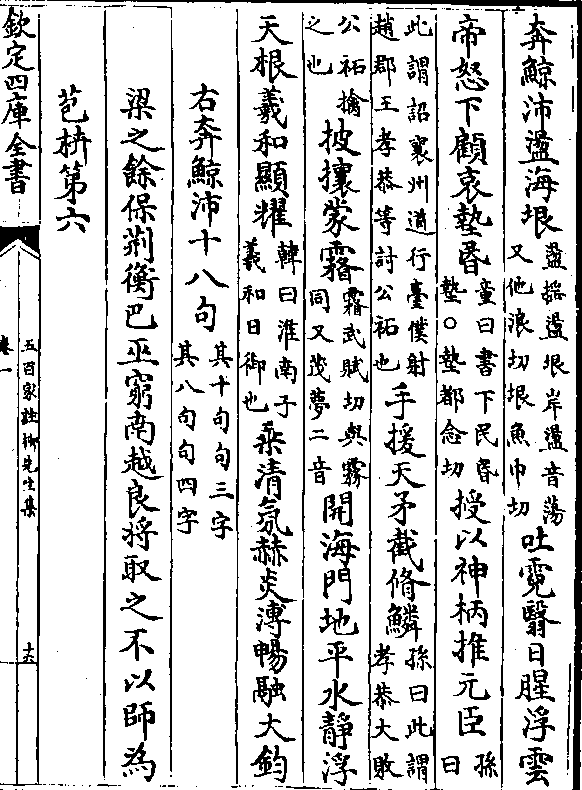 奔鯨沛盪海垠盪搖盪垠岸盪音蕩又他浪切垠魚巾切吐霓翳日腥浮雲
帝怒下顧哀墊昬童曰書下民昏墊○墊都念切授以神柄推元臣孫曰
此謂詔襄州道行臺僕射趙郡王孝恭等討公祏也手援天矛截脩鱗孫曰此謂孝恭大敗
公祏擒之也披攘蒙霿霿武賦切與霧同又茂夢二音開海門地平水靜浮
天根羲和顯耀韓曰淮南子羲和日御也乗清氛赫炎溥暢融大鈞
右奔鯨沛十八句其十句句三字其八句句四字
梁之餘保荆衡巴巫窮南越良將取之不以師為
苞枿第六
欽定四庫全書
五百家註柳先生集
卷一
十六